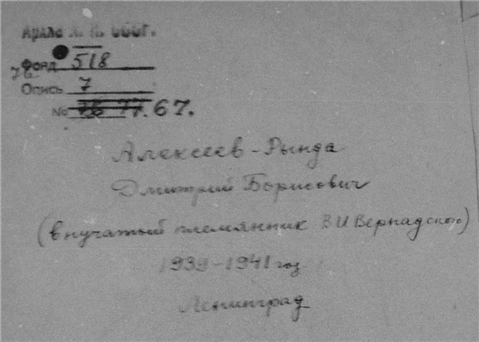 Архив А. Н. СССР.
Фонд 518
Опись 7
№ 76 77.67.
Алексеев-Рында
Дмитрий Борисович
(внучатый племянник В И Вернадского)
1939-1941 год
Ленинград